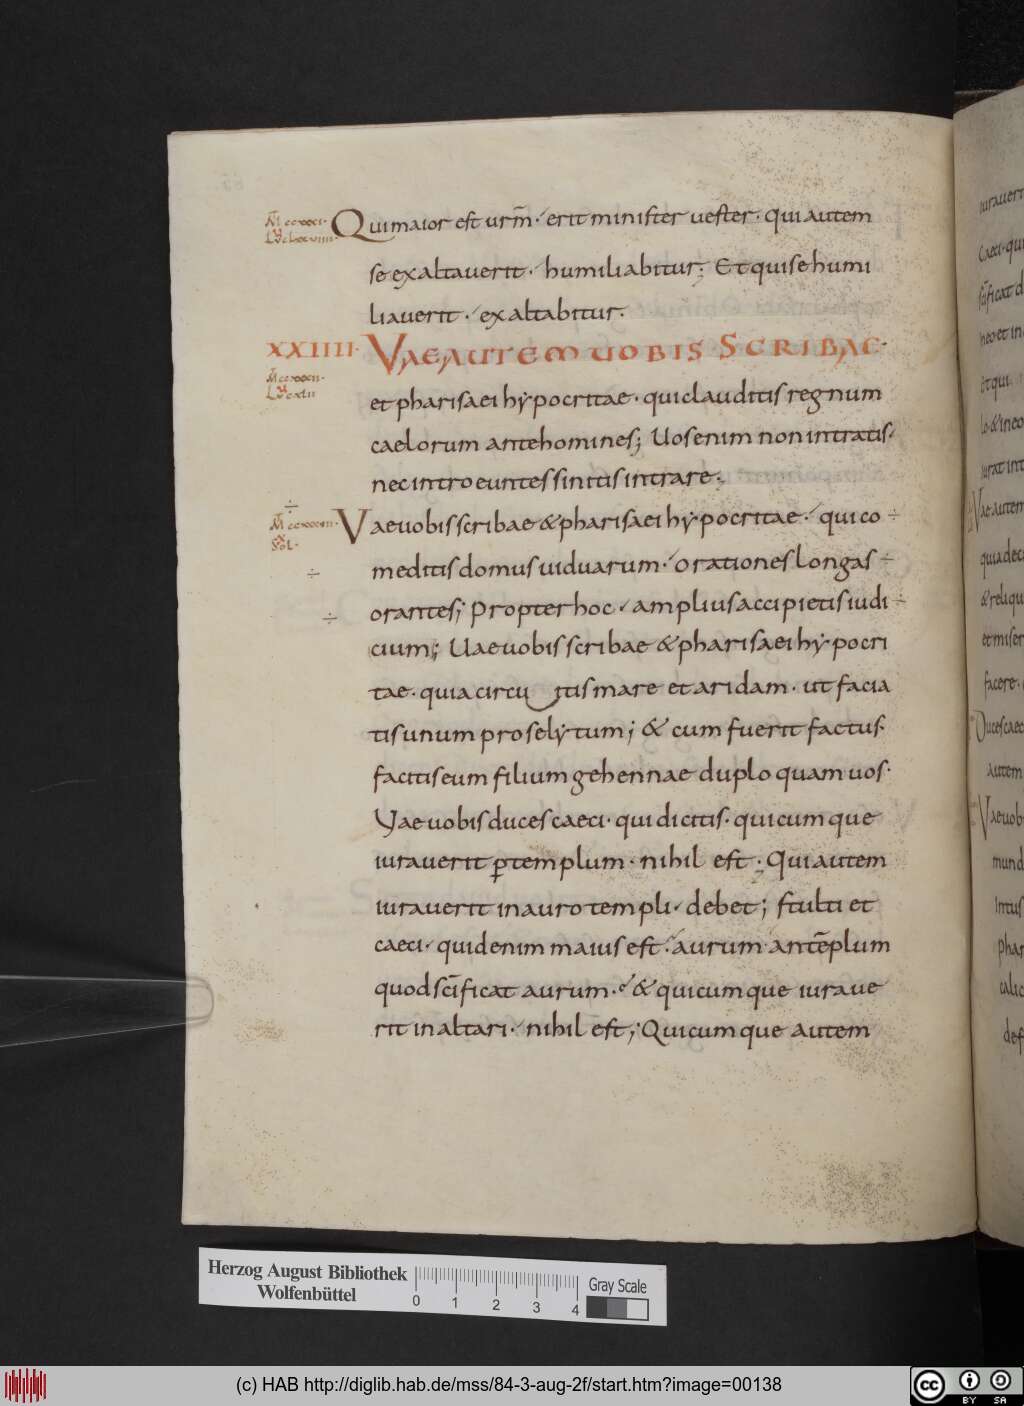 M̄ ccxxxi· Qui maior est urm̄· erit minister uester· qui autem
Lu clxxviiii·
se exaltauerit· humiliabitur; Et qui se humi
liauerit· exaltabitur·
XXIIII· VAE AUTEM UOBIS SCRIBAE·
M̄ ccxxxii·
Lu cxlii
et pharisaei hẏpocritae· qui clauditis regnum
caelorum ante homines; Uos enim non intratis·
nec introeuntes sinitis intrare·
M̄ ccxxxiii· Vae uobis scribae & pharisaei hẏpocritae· qui co ÷
meditis domus uiduarum· orationes longas ÷
orantes; Propter hoc· amplius accipietis iudi ÷
cium; Uae uobis scribae & pharisaei hẏpocri
tae· quia circu itis mare et aridam· ut facia
tis unum proselẏtum; & cum fuerit factus·
facitis eum filium gehennae duplo quam uos·
Vae uobis duces caeci· qui dicitis· quicumque
iurauerit ꝑ templum· nihil est; Qui autem
iurauerit in auro templi· debet; stulti et
caeci· quid enim maius est· aurum· an tēplum
quod sc̄ificat aurum· & quicumque iuraue
rit in altari· nihil est; Quicumque autem
Herzog August Bibliothek
Wolfenbüttel
0 1 2 3 4
Gray Scale
(c) HAB http://diglib.hab.de/mss/84-3-aug-2f/start.htm?image=00138
cc BY SA